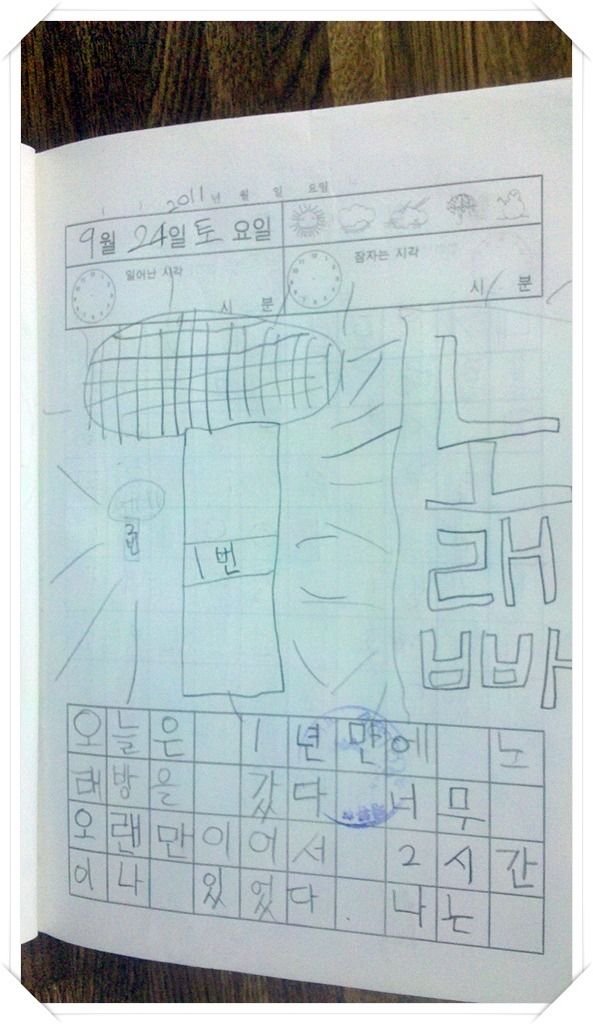 2011년 월 일 요일
9월 24일 토 요일
일어난 시각
시 분
잠자는 시각
시 분
노
래
빠
2번
1번
오늘은 1년만에 노
래방을 갔다 너무
오랜만이어서 2시간
이나 있었다. 나는